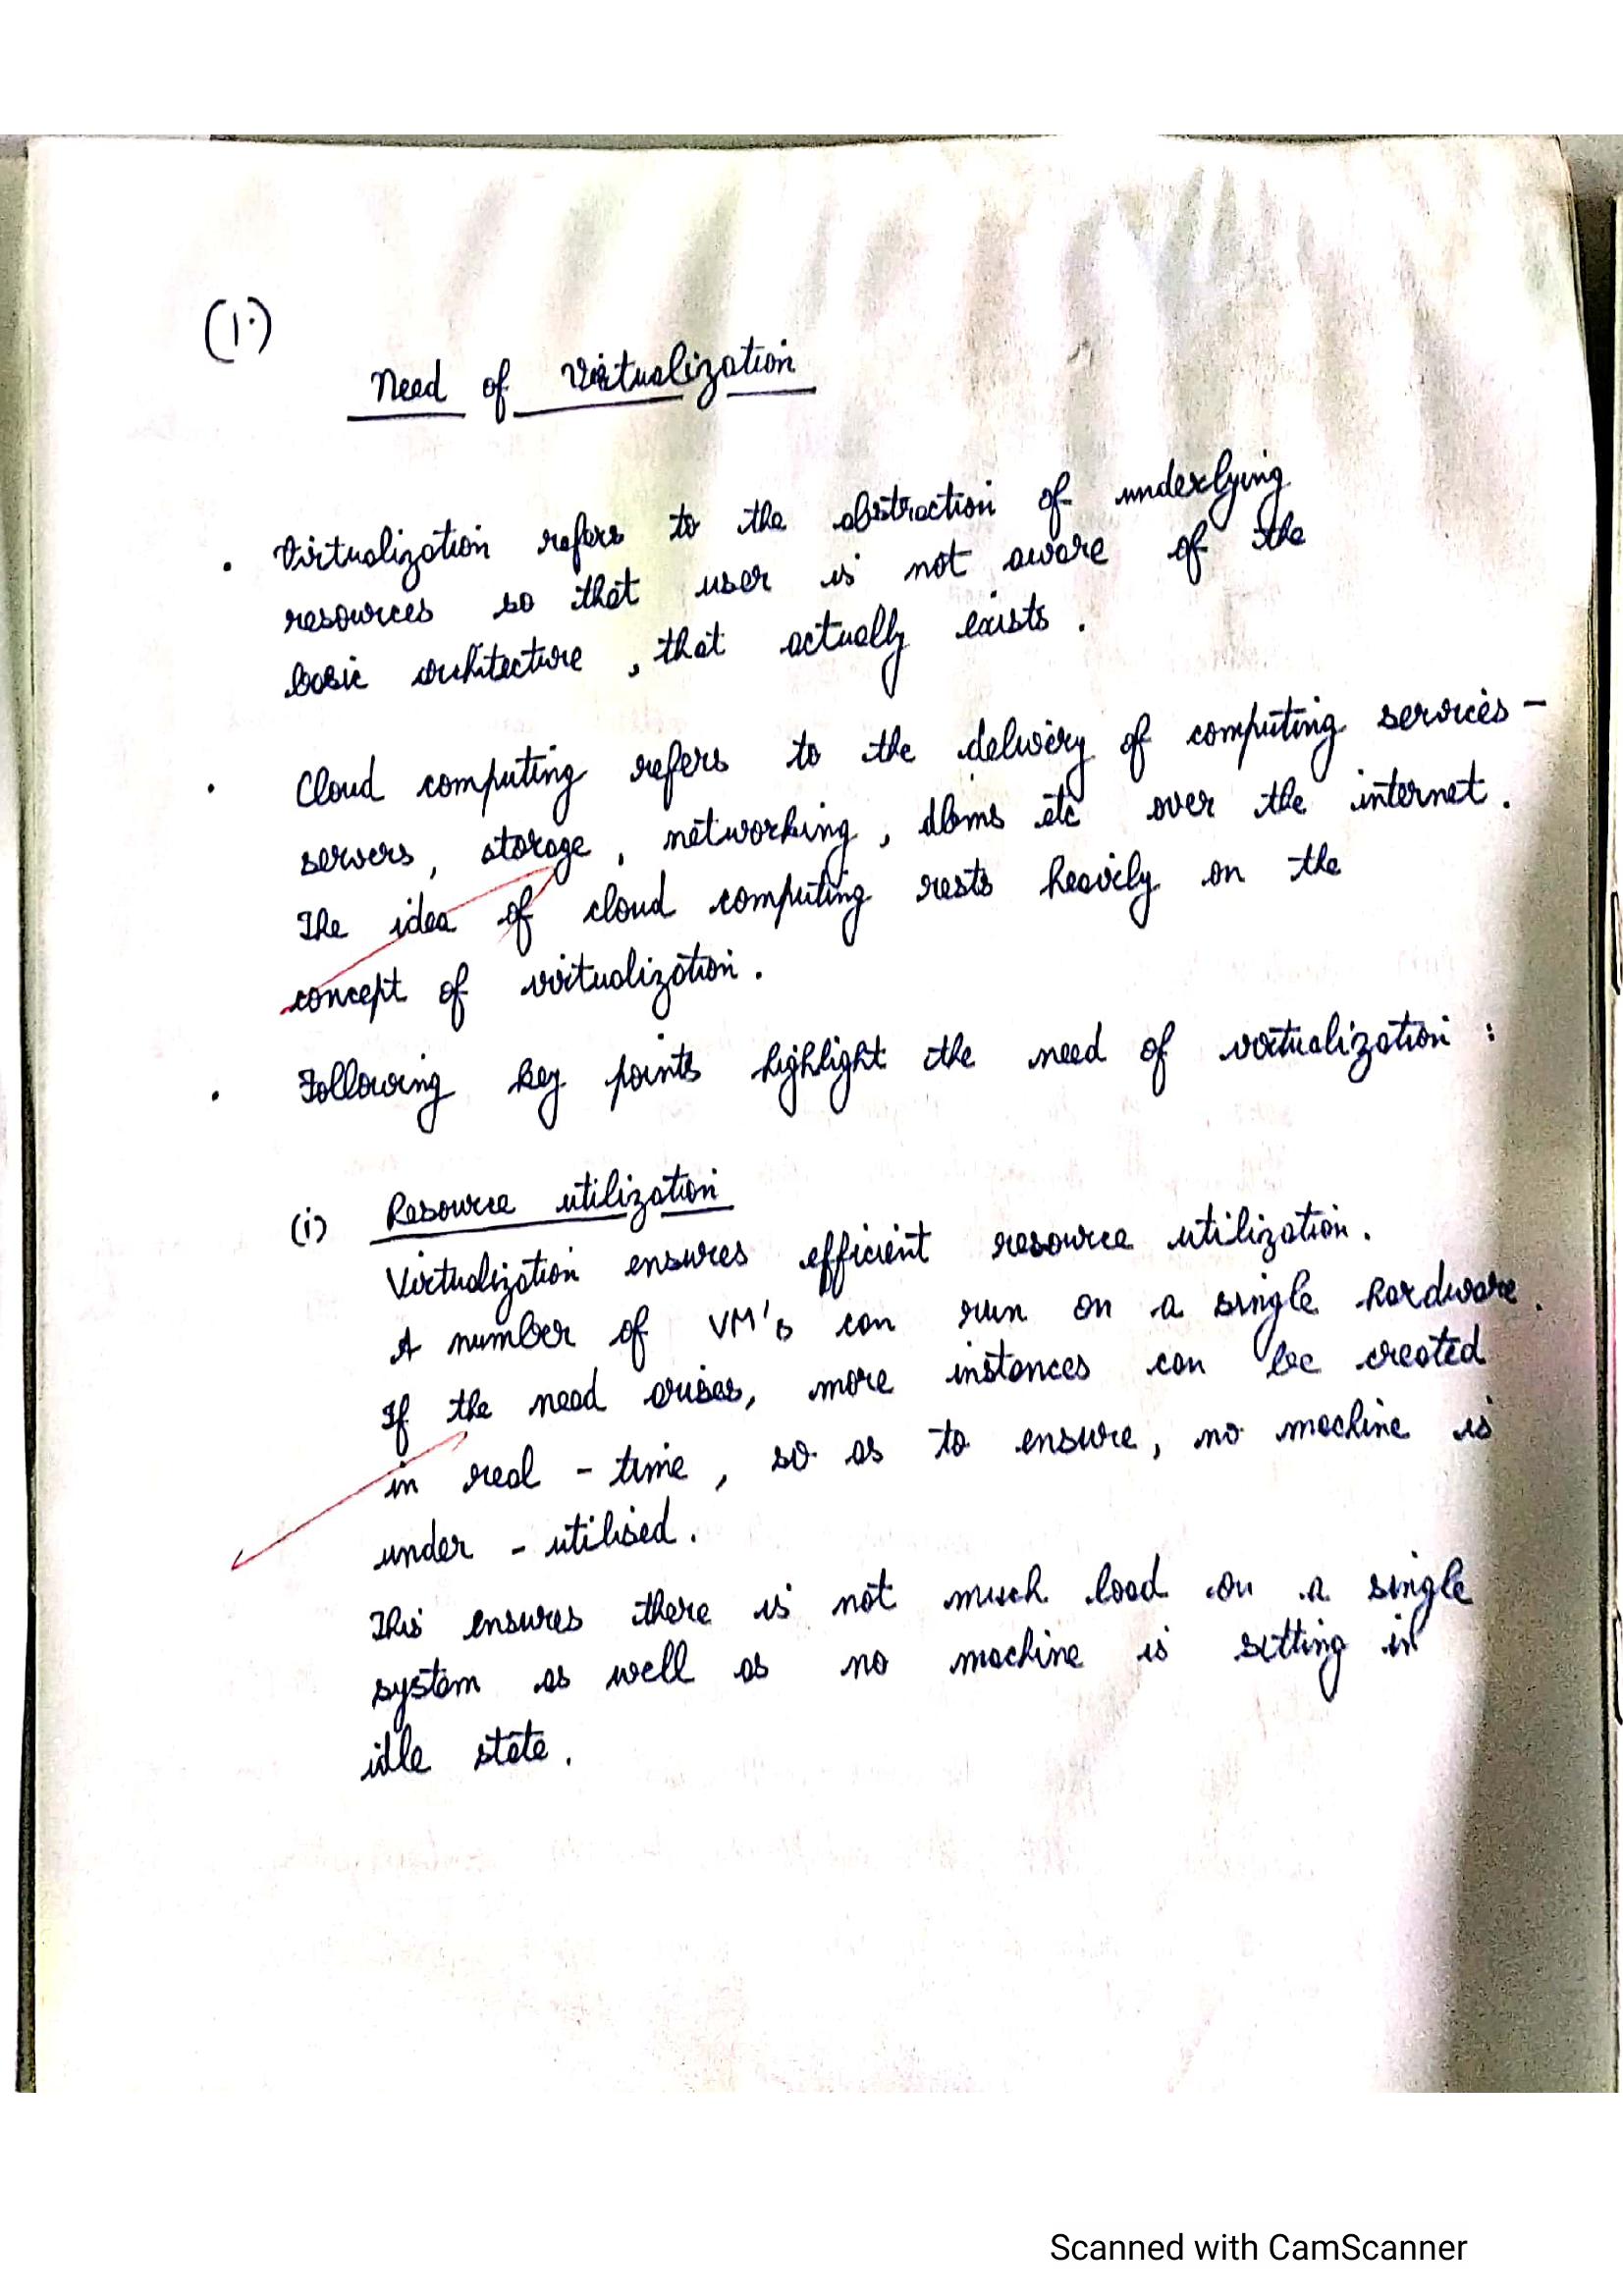 (1.)
Need of Virtualization
• Virtualization refers to the abstraction of underlying
resources so that user is not aware of the
basic architecture, that actually exists.
• Cloud computing refers to the delivery of computing services -
servers, storage, networking, dbms etc over the internet.
The idea of cloud computing rests heavily on the
concept of virtualization.
• Following key points highlight the need of virtualization :
(i) Resource utilization
Virtualization ensures efficient resource utilization.
A number of VM's can run on a single hardware.
If the need arises, more instances can be created
in real - time, so as to ensure, no machine is
under - utilised.
This ensures there is not much load on a single
system as well as no machine is sitting in
idle state.
Scanned with CamScanner